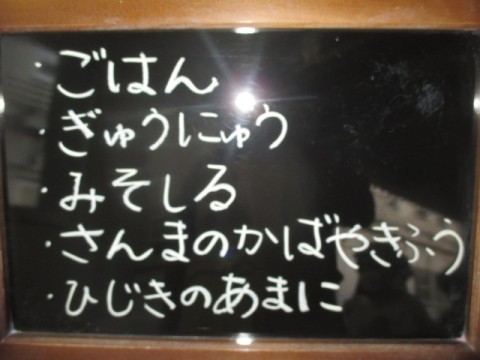 ・ごはん
・ぎゅうにゅう
・みそしる
・さんまのかばやきふう
・ひじきのあまに